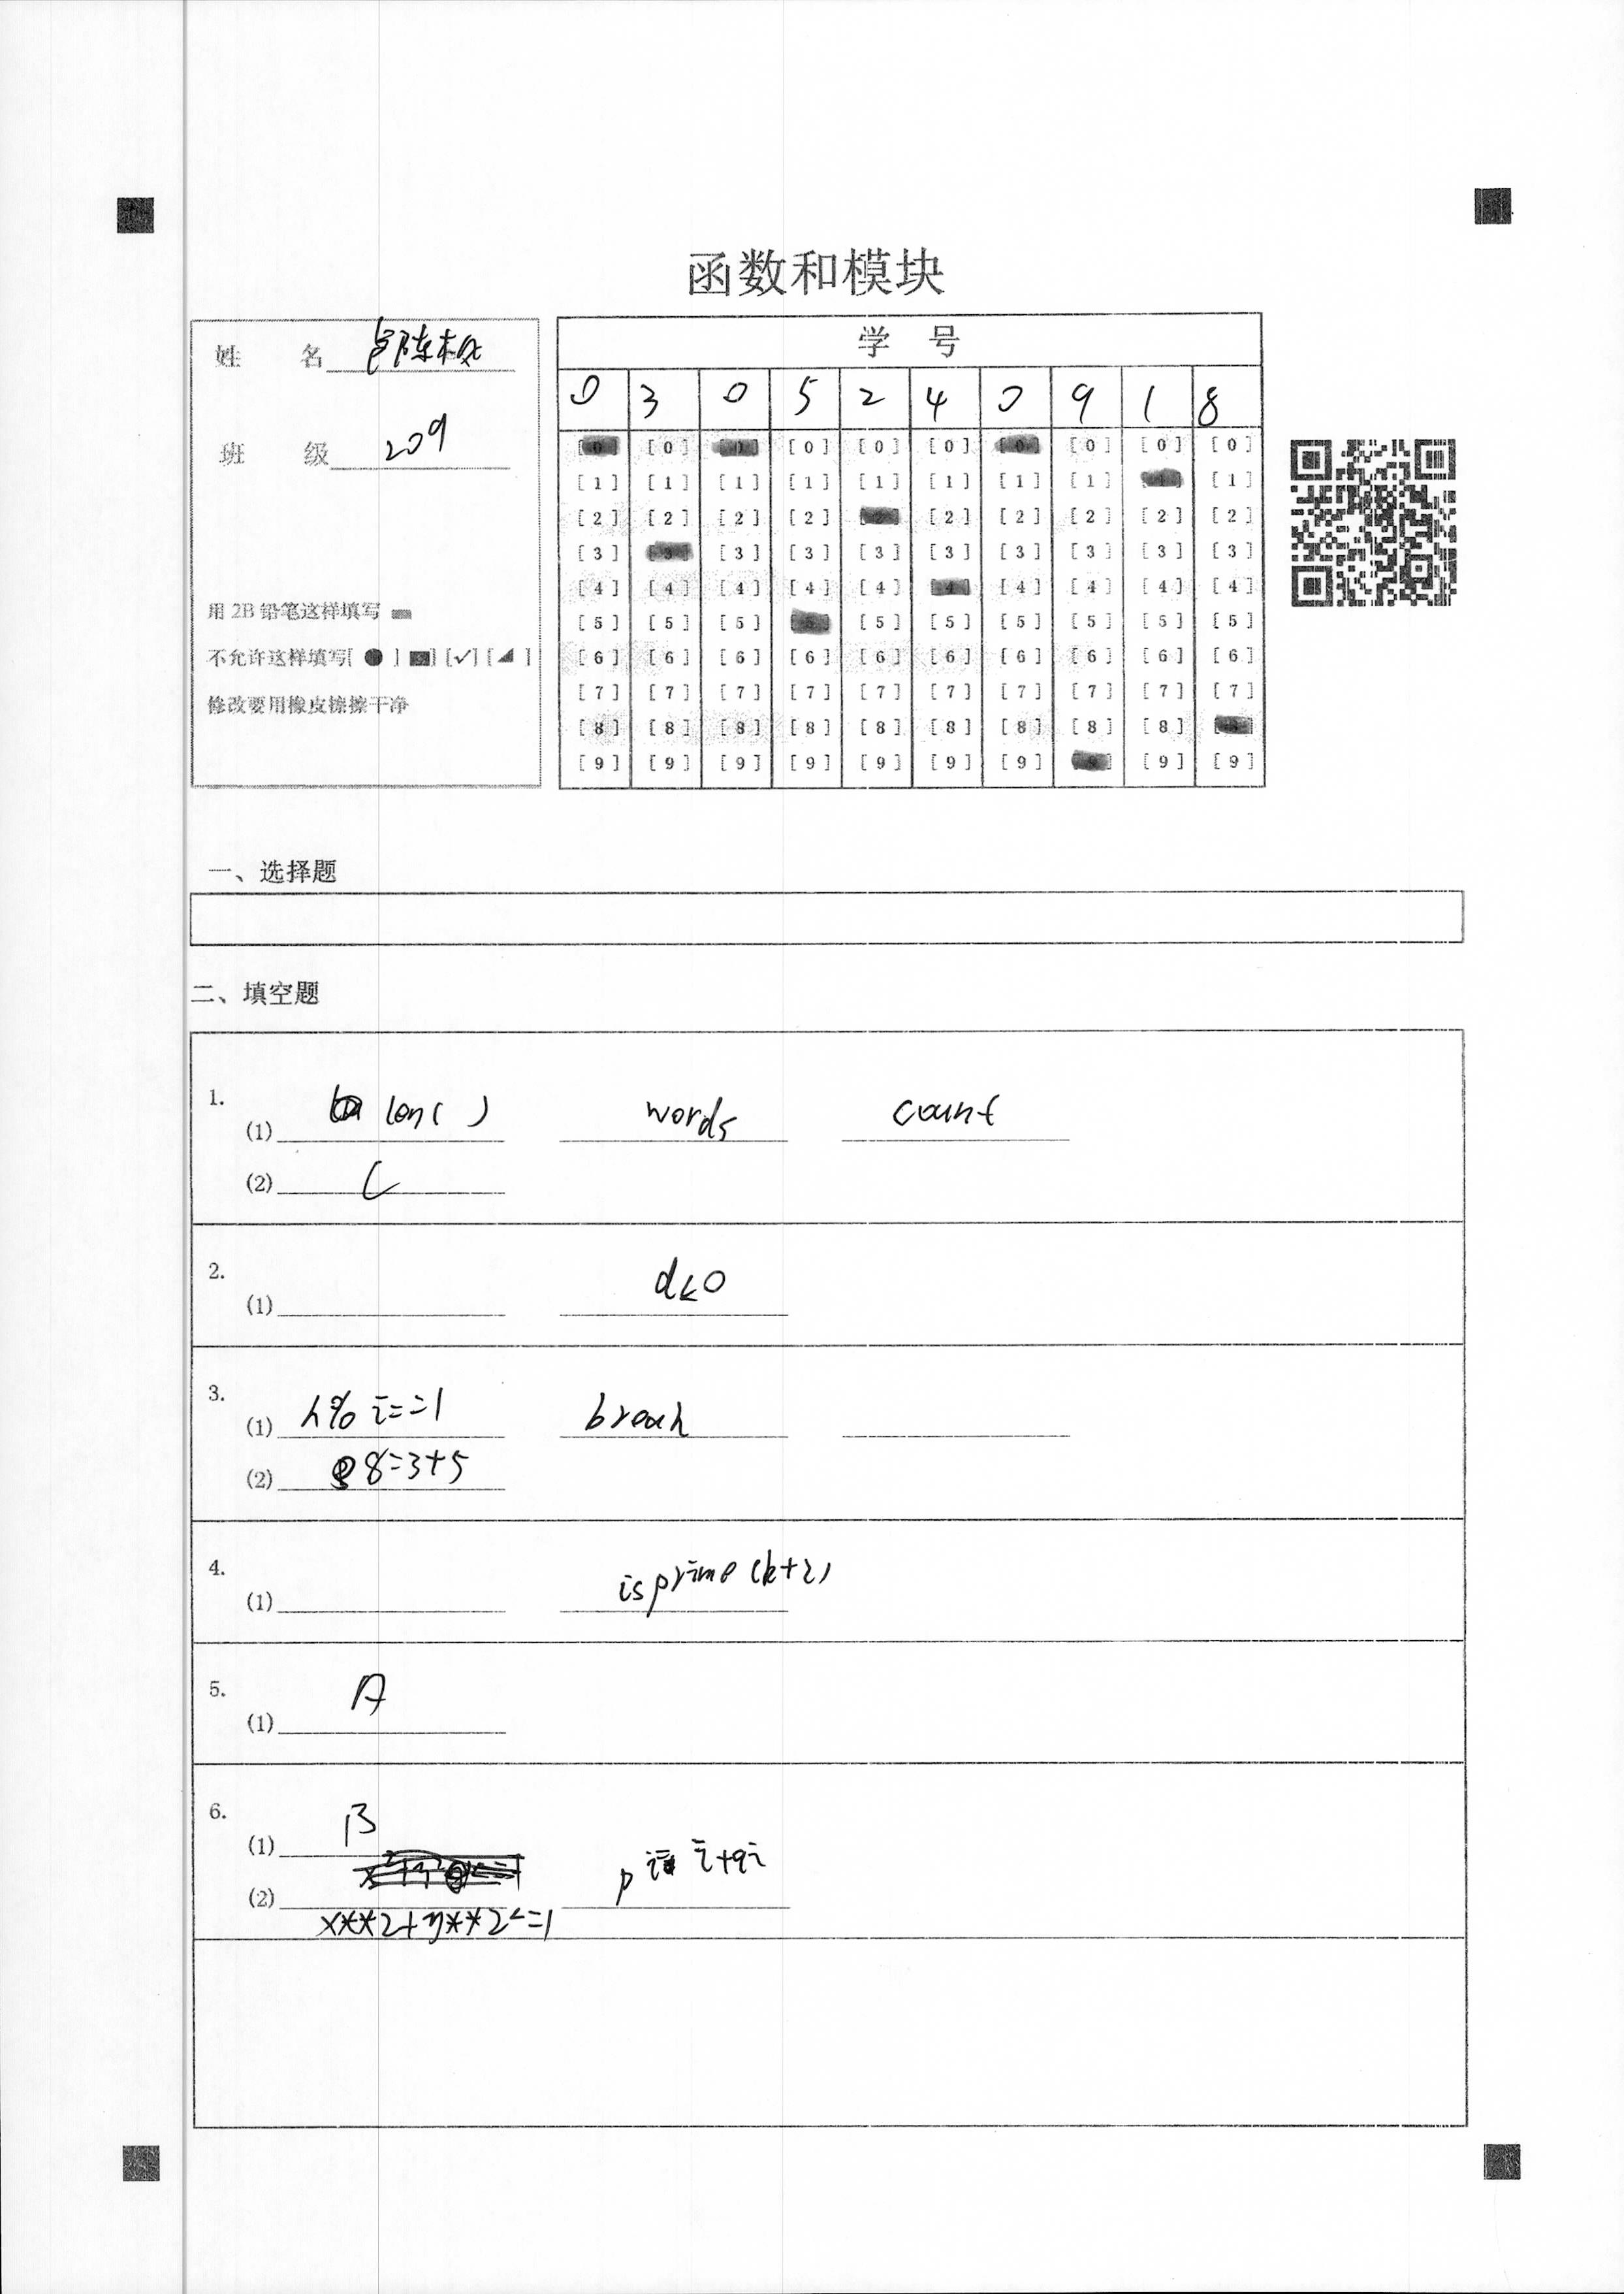 函数和模块
姓 名
班 级 209
用 2B 铅笔这样填写
不允许这样填写[ ● ] [√] [ ]
修改要用橡皮擦擦干净
学 号
0 3 0 5 2 4 0 9 1 8
[0] [0] [0] [0] [0] [0] [0] [0] [0] [0]
[1] [1] [1] [1] [1] [1] [1] [1] [1] [1]
[2] [2] [2] [2] [2] [2] [2] [2] [2] [2]
[3] [3] [3] [3] [3] [3] [3] [3] [3] [3]
[4] [4] [4] [4] [4] [4] [4] [4] [4] [4]
[5] [5] [5] [5] [5] [5] [5] [5] [5] [5]
[6] [6] [6] [6] [6] [6] [6] [6] [6] [6]
[7] [7] [7] [7] [7] [7] [7] [7] [7] [7]
[8] [8] [8] [8] [8] [8] [8] [8] [8] [8]
[9] [9] [9] [9] [9] [9] [9] [9] [9] [9]
一、选择题
二、填空题
1.
(1) len( ) words count
(2) C
2.
(1) d<0
3.
(1) n% i==1 break
(2) 8=3+5
4.
(1) isprime(k+2)
5.
(1) A
6.
(1) B
(2) x**2+y**2<=1